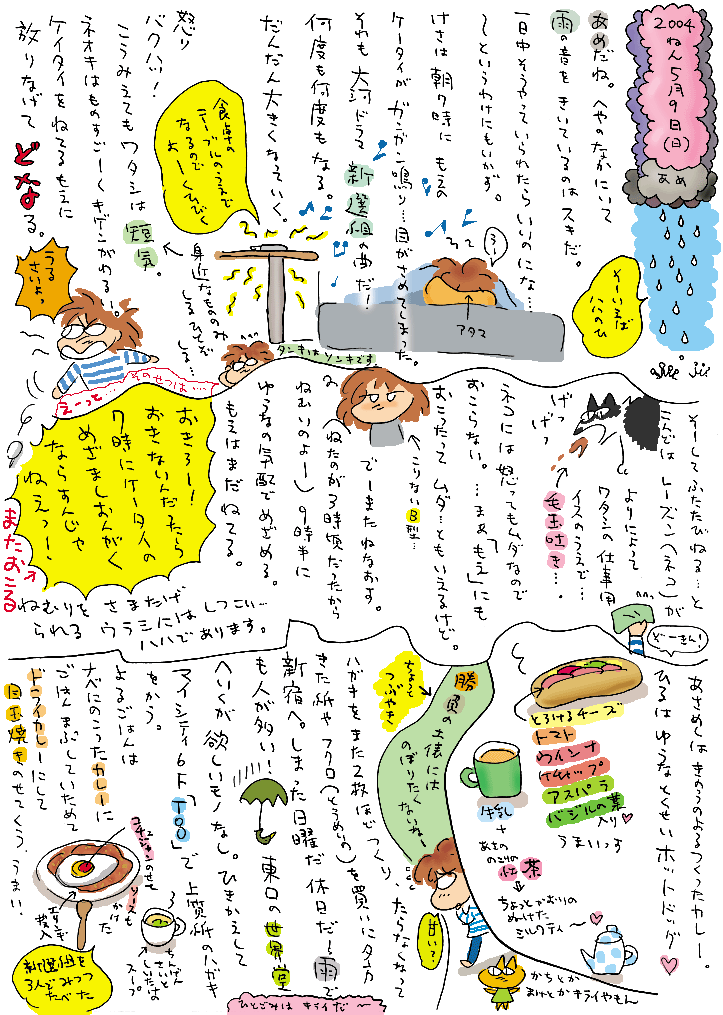 2004
ねん5月9日(日)
あめ
あめだね。へやのなかにいて
雨の音をきいているのはスキだ。
一日中そうやっていられたらいいのにな…
〜というわけにもいかず。
けさは朝7時にもえの
ケータイがガンガン鳴り…目がさめてしまった。
それも大河ドラマ新選組の曲だ!
何度も何度もなる。
だんだん大きくなっていく。
食卓の
テーブルのうえで
なるので
よーくひびく
怒り
バクハツ!
こうみえてもワタシは短気。
ネオキはものすごーくキゲンがわるい!
ケイタイをねてるもえに
放りなげて
どなる。
身近なもののみ
しるひとぞ
しる…
うるさいよっ
アタマ
タンキはソンキです
そーいえば
ハハのひ
えーっと…そのせつは…
そしてふたたびねる…と
こんどはレーズン(ネコ)が
よりによって
ワタシの仕事用
イスのうえで…
毛玉吐き…。
げっ
げっ
ネコには怒ってもムダなので
おこらない。…まあ「もえ」にも
おこったってムダ…ともいえるけど。
こりないB型…
でーまたねなおす。
(ねたのが3時頃だったから
ねむいのよー)9時半に
ゆうなの気配でめざめる。
もえはまだねてる。
おきろー!
おきないんだったら
7時にケータイの
めざましおんがく
ならすんじゃ
ねえっー!
またおこる
ねむりをさまたげ
られるウラミにはしつこい…
ハハであります。
どーきん!
あさめしはきのうのよるつくったカレー。
ひるはゆうなとくせいホットドッグ
とろけるチーズ
トマト
ウインナ
ケチャップ
アスパラ
バジルの葉
入り
うまいっす
牛乳
+
あさの
のこりの
紅茶
ちょっとでおりの
ぬけた
ミルクティ〜
かちとか
まけとかキライやもん
甘い?
勝負の土俵には
のぼりたく
ないねー
ちょっと
つぶやき
ハガキをまた2枚ほどつくり、たらなくなって
きた紙やフクロ(とうめいの)を買いに夕方
新宿へ。しまった日曜だ休日だ!雨で
も人が多い!東口の世界堂
へいくが欲しいモノなし。ひきかえして
マイシティ6F「TOO」で上質紙のハガキ
をかう。
よるごはんは
ナベにのこったカレーに
ごはんまぶしていためて
ドライカレーにして
目玉焼きのせてくう。うまい。
ひとごみはキライだ〜
コチュジャンのせて
ソースも
かけた
ちんげん
さいと
しいたけの
スープ
新選組を
3人でみつつ
たべた